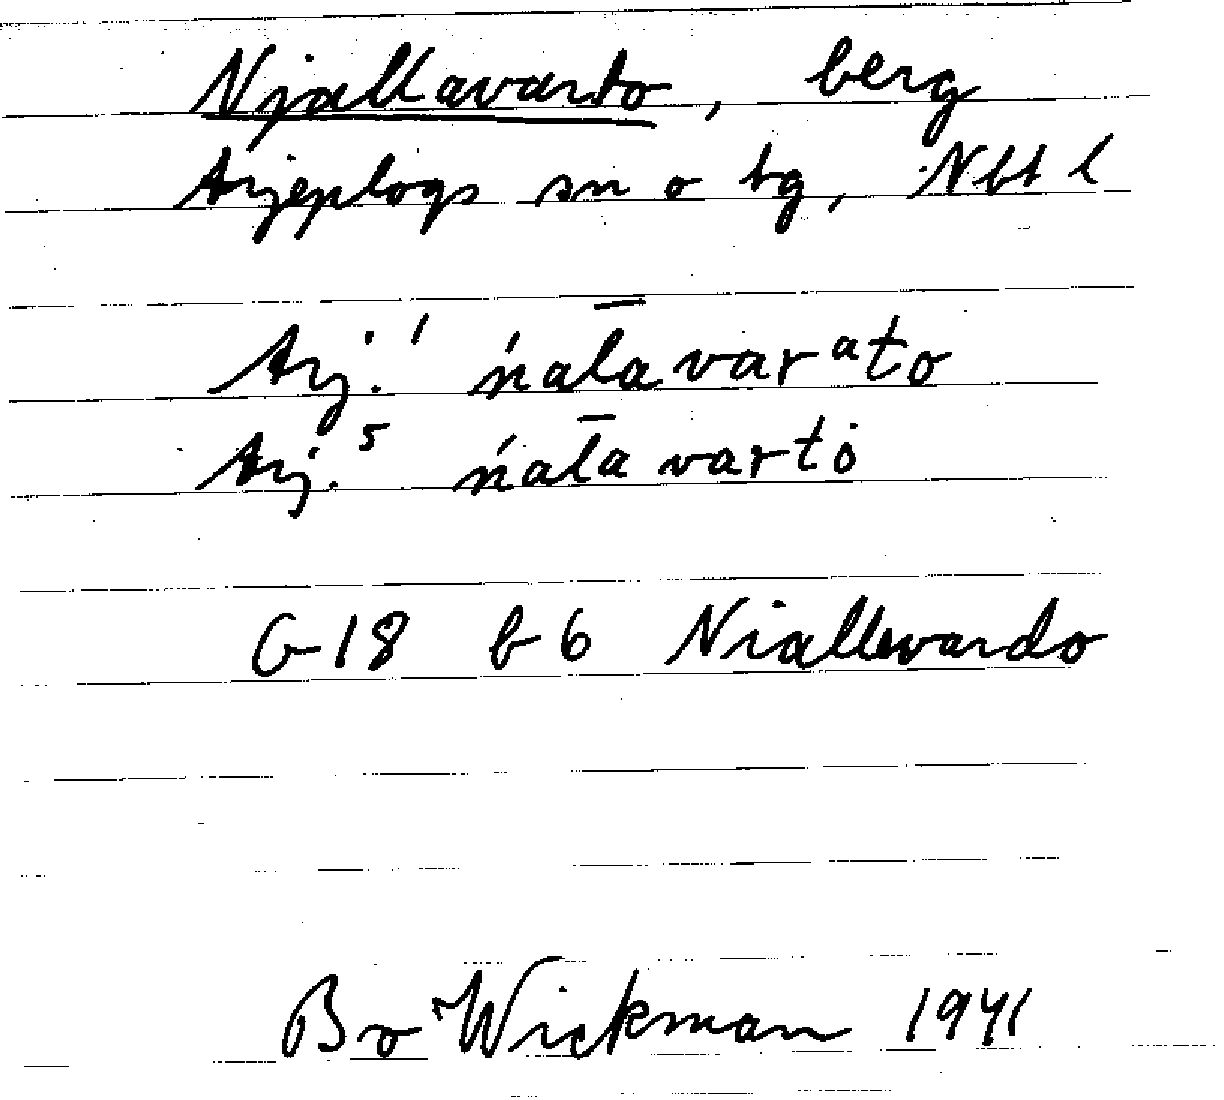 Njallavardo, berg
Arjeplogs sn o tg, Nbt l
Arj.¹ ńal̄avarᵃto
Arj.⁵ ńal̄avartȯ
G-18 b 6 Niallevardo
Bo Wickman 1941